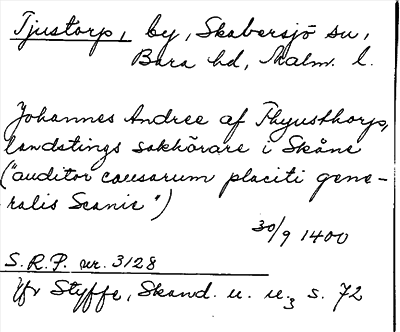 Tjustorp, by, Skabersjö sn,
Bara hd, Malm. l.
Johannes Andree af Thyusthorp,
landstings sakhörare i Skåne
("auditor causarum placiti gene-
ralis Scanie")
30/9 1400
S.R.P. nr. 3128
jfr Styffe, Skand. u. u., s. 72